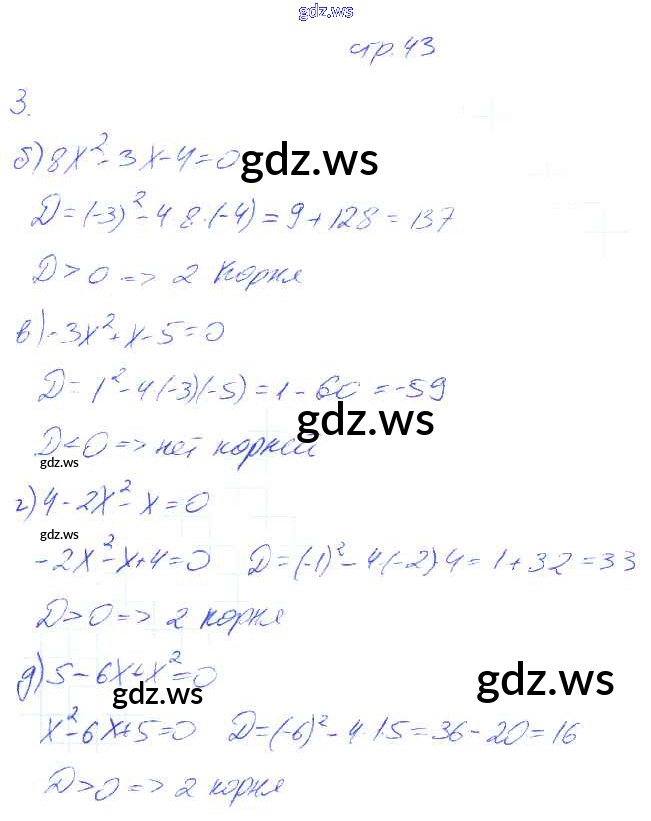 gdz.ws
стр. 43
3.
б) 8x² - 3x - 4 = 0
gdz.ws
D = (-3)² - 4·8·(-4) = 9 + 128 = 137
D > 0 => 2 корня
в) -3x² + x - 5 = 0
D = 1² - 4(-3)(-5) = 1 - 60 = -59
gdz.ws
D < 0 => нет корней
gdz.ws
г) 4 - 2x² - x = 0
gdz.ws
-2x² - x + 4 = 0 D = (-1)² - 4·(-2)·4 = 1 + 32 = 33
D > 0 => 2 корня
д) 5 - 6x + x² = 0
gdz.ws gdz.ws
x² - 6x + 5 = 0 D = (-6)² - 4·1·5 = 36 - 20 = 16
D > 0 => 2 корня